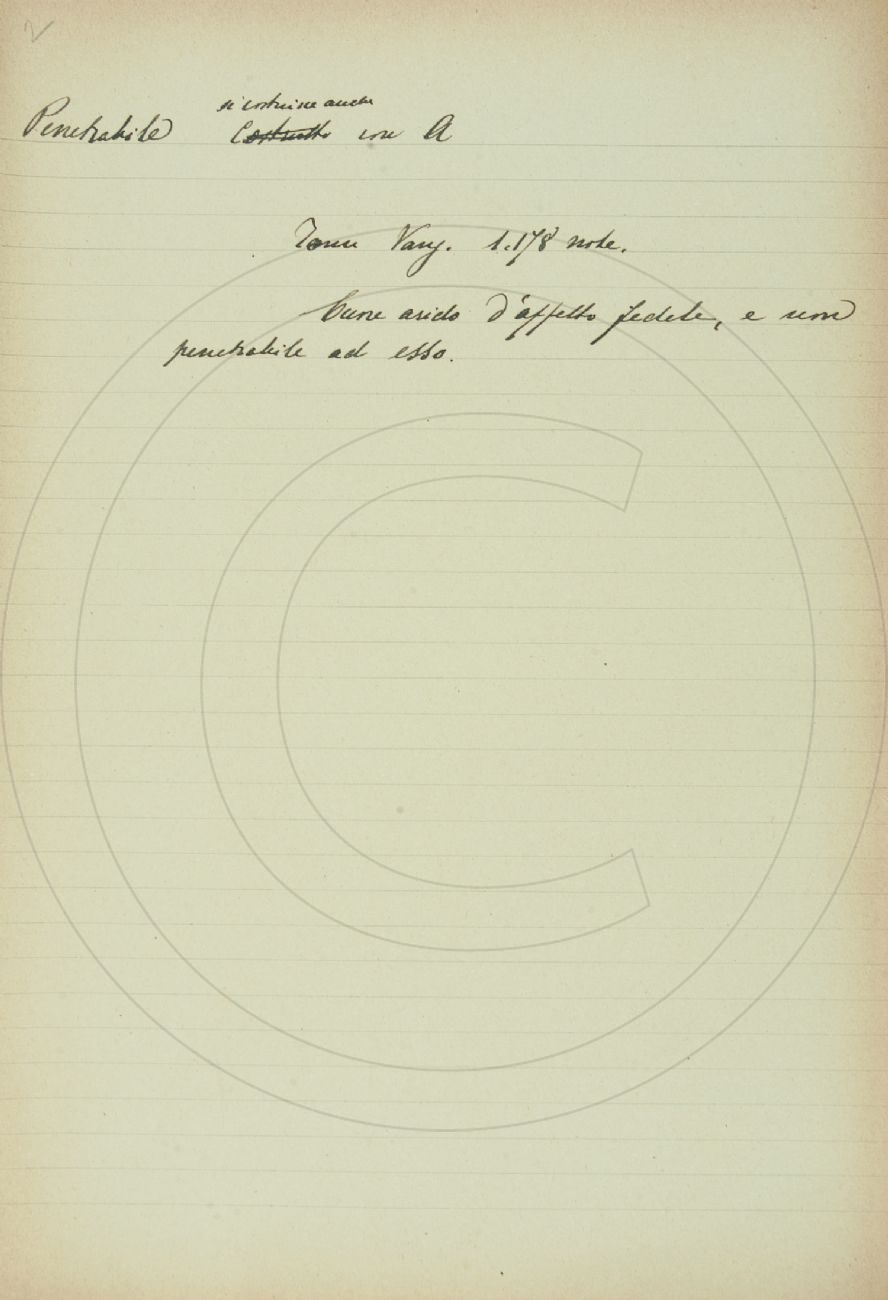 Penetrabile si costruisce anche Costrutto con A
Tomm Vang. 1.178 note.
Cuore arido d'affetto fedele, e non
penetrabile ad esso.